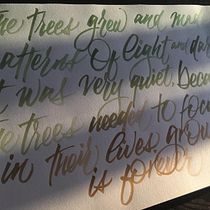 the trees grew and made
patterns of light and dark
it was very quiet, because
the trees needed to focus
in their lives, grow
is forever